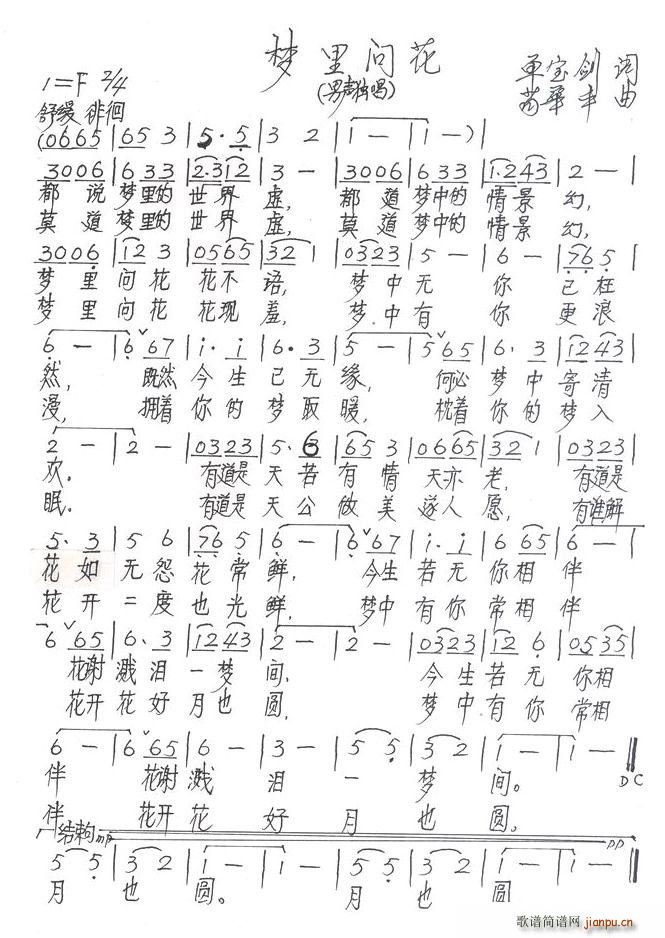 梦里问花
(男声独唱)
单宝剑 词
苗华丰 曲
1=F 2/4
舒缓 徘徊
(0665 | 65 3 | 5· 5 | 3 2 | 1 — | 1 — ) |
3006 | 6 33 | 2·312 | 3 — | 3006 | 6 33 | 1·243 | 2 — |
都说梦里的世界虚, 都道梦中的情景幻,
莫道梦里的世界虚, 莫道梦中的情景幻,
3006 | 12 3 | 0565 | 32 1 | 0323 | 5 — | 6 — | 76 5 |
梦里问花花不语, 梦中无你已枉
梦里问花花现羞, 梦中有你更浪
6 — | 6 ˇ67 | i· i | 6· 3 | 5 — | 5 ˇ65 | 6· 3 | 12 43 |
然, 既然今生已无缘, 何必梦中寄清
漫, 拥着你的梦取暖, 枕着你的梦入
2 — | 2 — | 0323 | 5· 6 | 65 3 | 0665 | 32 1 | 0323 |
欢。 有道是天若有情天亦老, 有道是
眠。 有道是天公做美遂人愿, 有谁解
5· 3 | 5 6 | 76 5 | 6 — | 6 ˇ67 | i· i | 6 65 | 6 — |
花如无怨花常鲜, 今生若无你相伴
花开二度也光鲜, 梦中有你常相伴
6 ˇ65 | 6· 3 | 12 43 | 2 — | 2 — | 0323 | 12 6 | 0535 |
花谢溅泪一梦间, 今生若无你相
花开花好月也圆, 梦中有你常相
6 — | 6 ˇ65 | 6 — | 3 — | 5 5 | 3 2 | 1 — | 1 — ‖
伴 花谢溅泪一梦间。 DC
伴, 花开花好月也圆。
结束句 mp pp
5 5 | 3 2 | 1 — | 1 — | 5 5 | 3 2 | 1 — | 1 — ‖
月也圆。 月也圆
歌谱简谱网 jianpu.cn